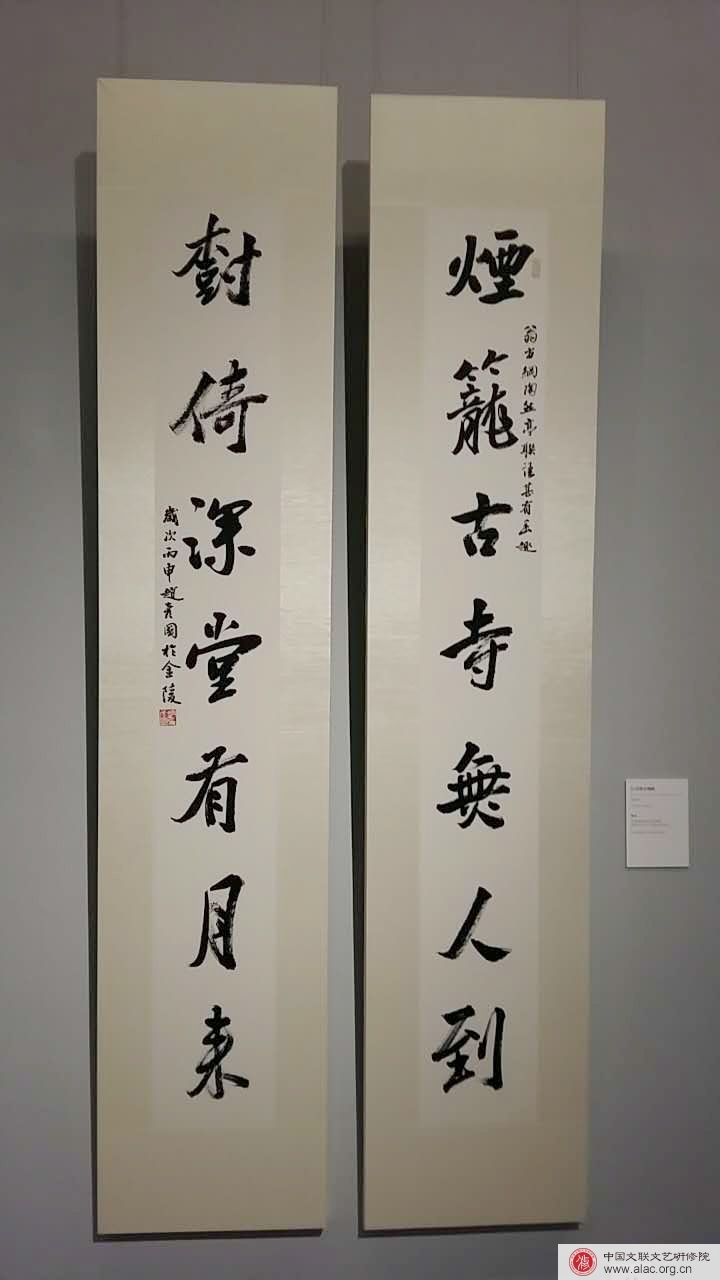 煙籠古寺無人到
翁方綱陶然亭聯語甚有禾趣
樹倚深堂有月来
歲次丙申趙彥國於金陵
中国文联文艺研修院
www.alac.org.cn